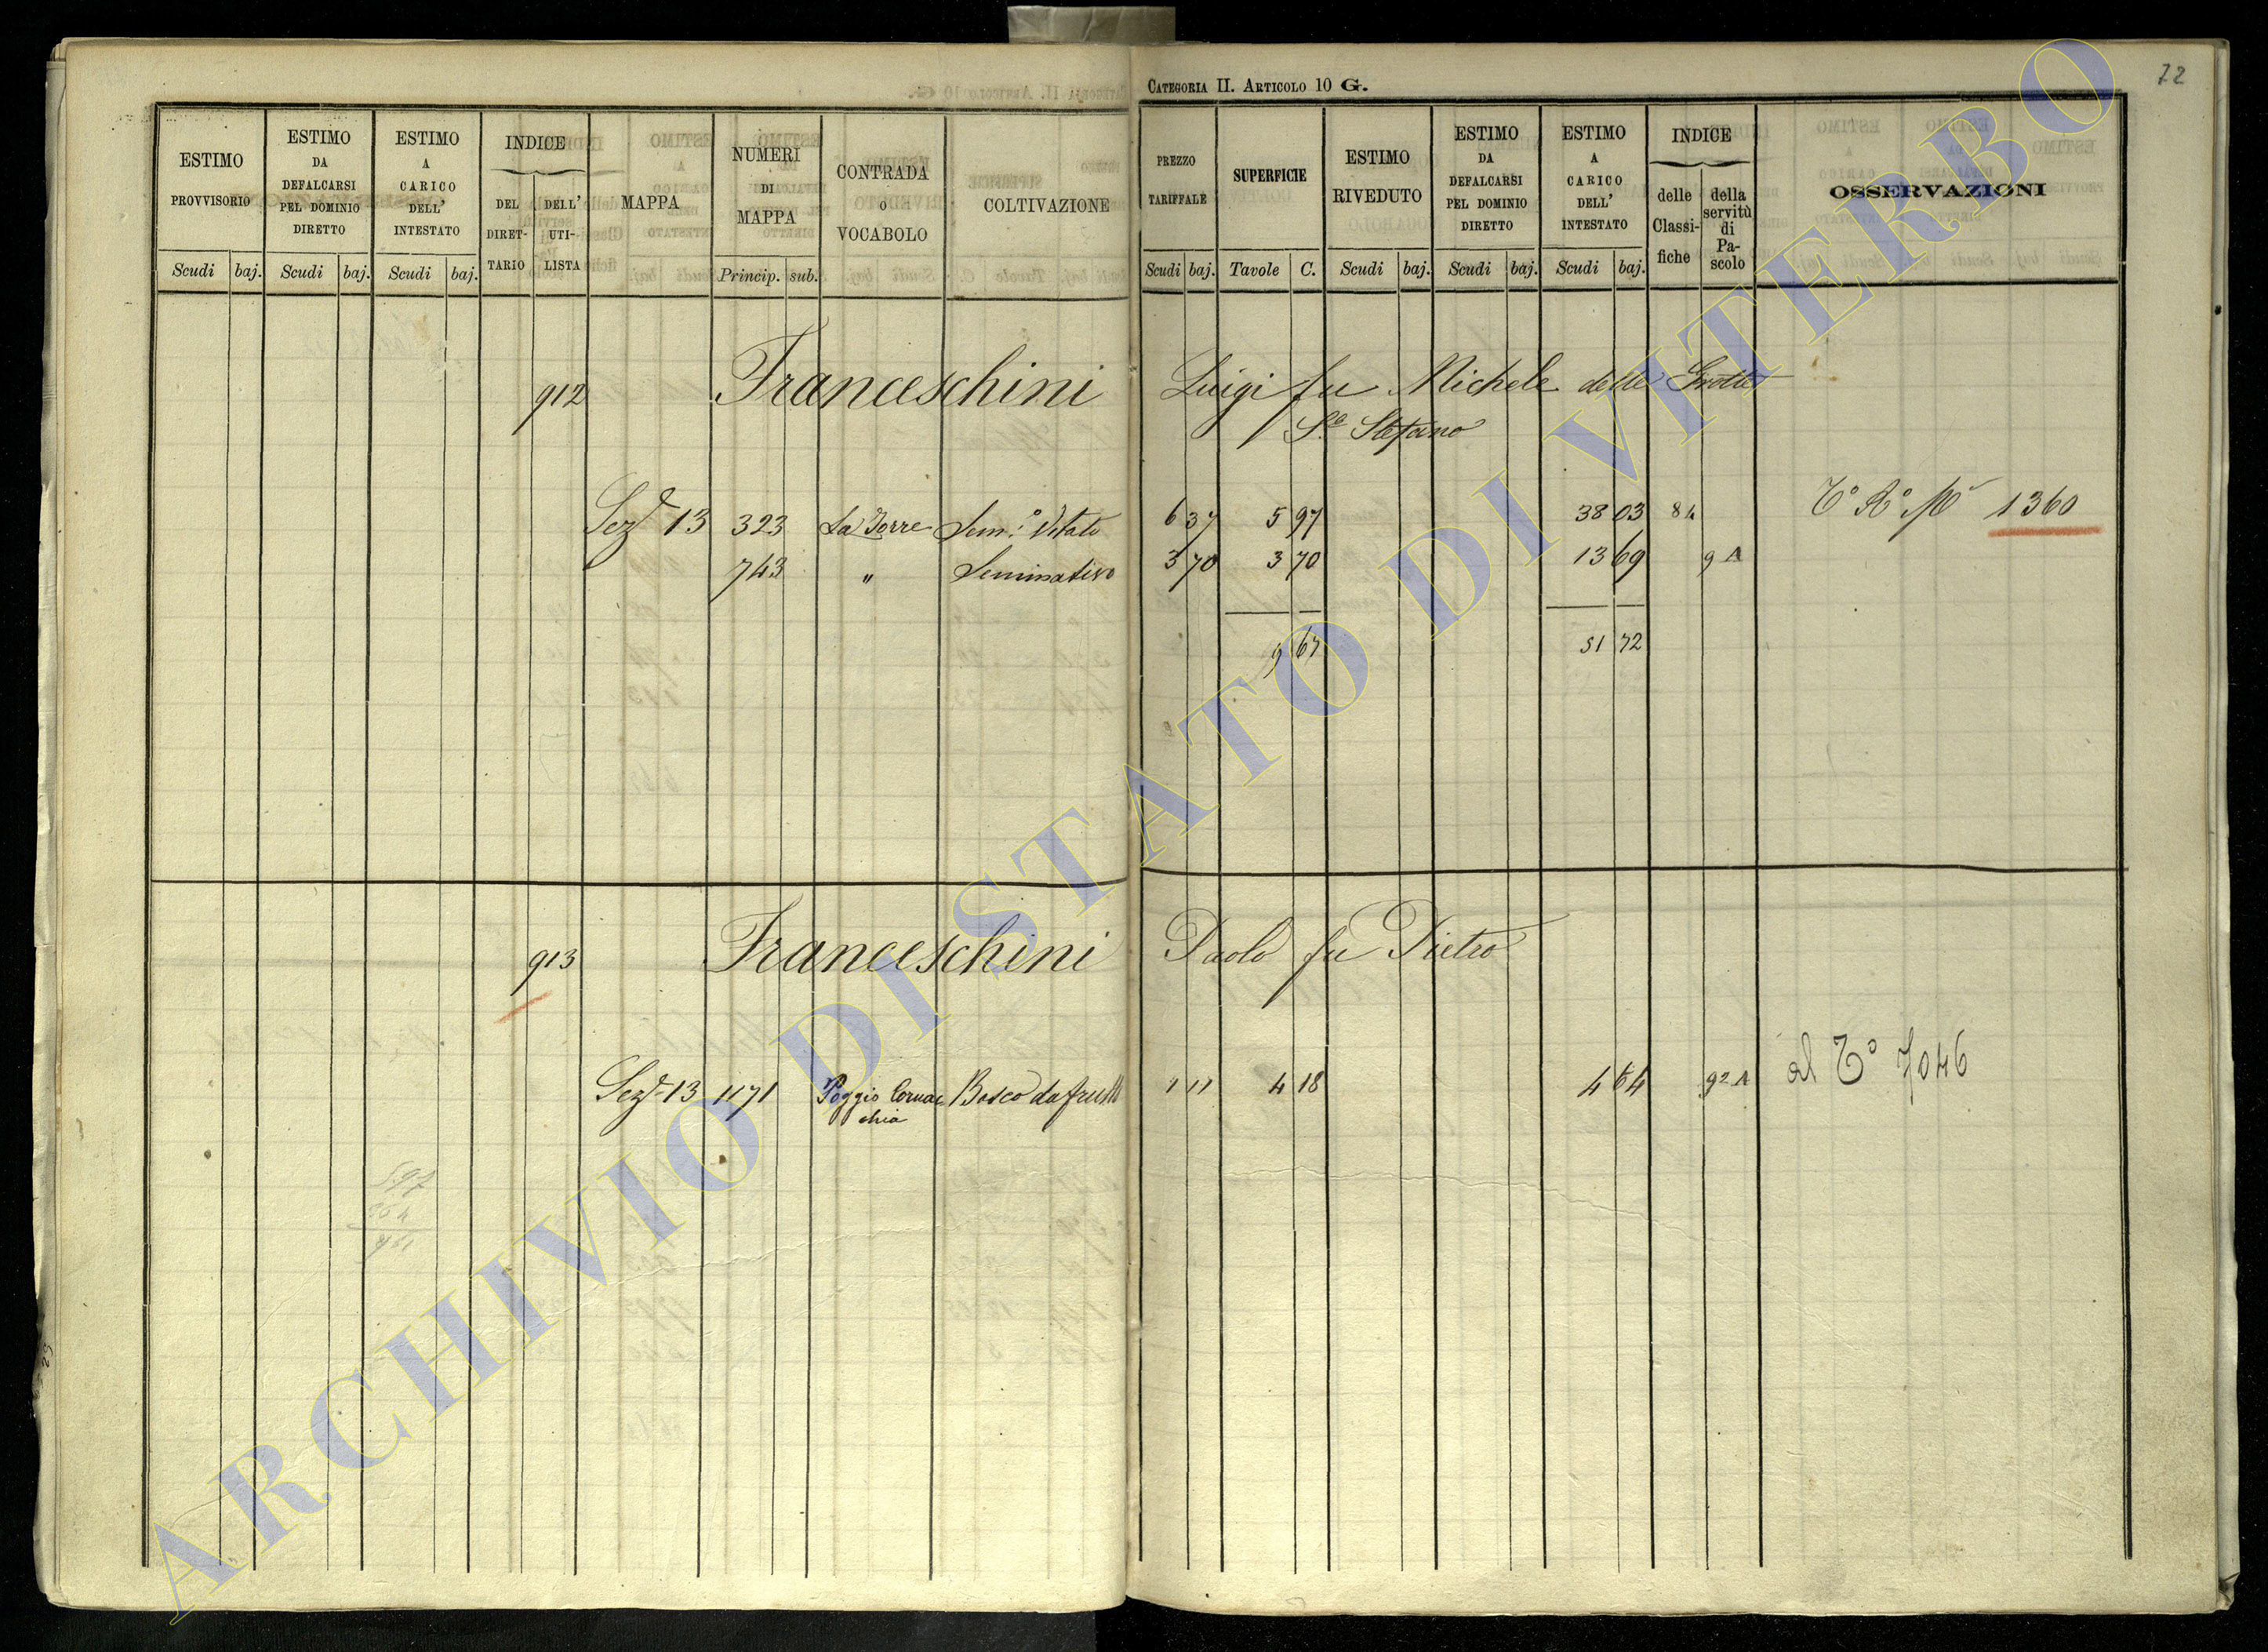 CATEGORIA II. ARTICOLO 10 G.
72
ESTIMO PROVVISORIO
Scudi baj.
ESTIMO DA DEFALCARSI PEL DOMINIO DIRETTO
Scudi baj.
ESTIMO A CARICO DELL' INTESTATO
Scudi baj.
INDICE
DEL DIRET-TARIO
DELL' UTI-LISTA
MAPPA
NUMERI DI MAPPA
Princip. sub.
CONTRADA O VOCABOLO
COLTIVAZIONE
PREZZO TARIFFALE
Scudi baj.
SUPERFICIE
Tavole C.
ESTIMO RIVEDUTO
Scudi baj.
ESTIMO DA DEFALCARSI PEL DOMINIO DIRETTO
Scudi baj.
ESTIMO A CARICO DELL' INTESTATO
Scudi baj.
INDICE
delle Classi-fiche
della servitù di Pa-scolo
OSSERVAZIONI
912 Franceschini Luigi fu Michele delle Grotte
Sto Stefano
Sez 13 323 La Torre Sem.o Vitato 6 37 5 97 38 03 84 To Ro No 1360
743 " Seminativo 3 70 3 70 13 69 9 A
9 67 51 72
913 Franceschini Paolo fu Pietro
Sez 13 1171 Poggio Cornac Bosco da frutto 1 11 4 18 4 64 92 A al To 7046
chia
5.97
ARCHIVIO DI STATO DI VITERBO